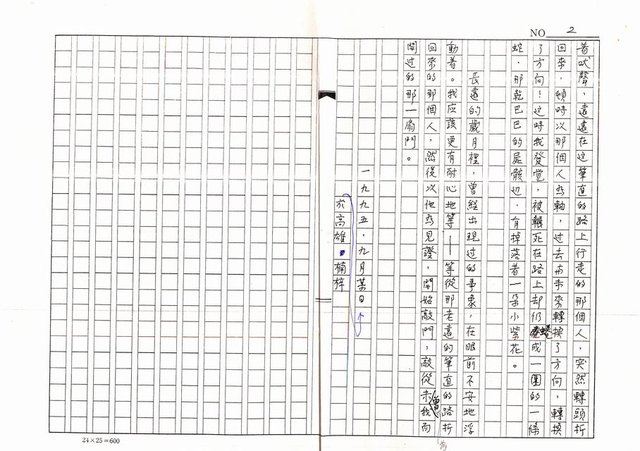 NO 2
着吠聲，遠遠在这筆直的路上行走的那個人，突然轉頭折
回來，頓時以那個人為軸，过去未來轉換了方向，轉換
了方向！这時我發覚，被輾死在路上却仍蜷成一團的一條
蛇，那乾巴巴的屍骸边，有掉落着一朵小紫花。
長遠的歲月裡，曾經出現过的事象，在眼前不安地浮
動着。我应該更有耐心地等——等從那老遠的筆直的路折
回來的那個人，然後以他為見證，開始敲門，敲從未曾我而
開过的那一扇門。
一九九五．九月某日
於高雄．楠梓
24×25=600